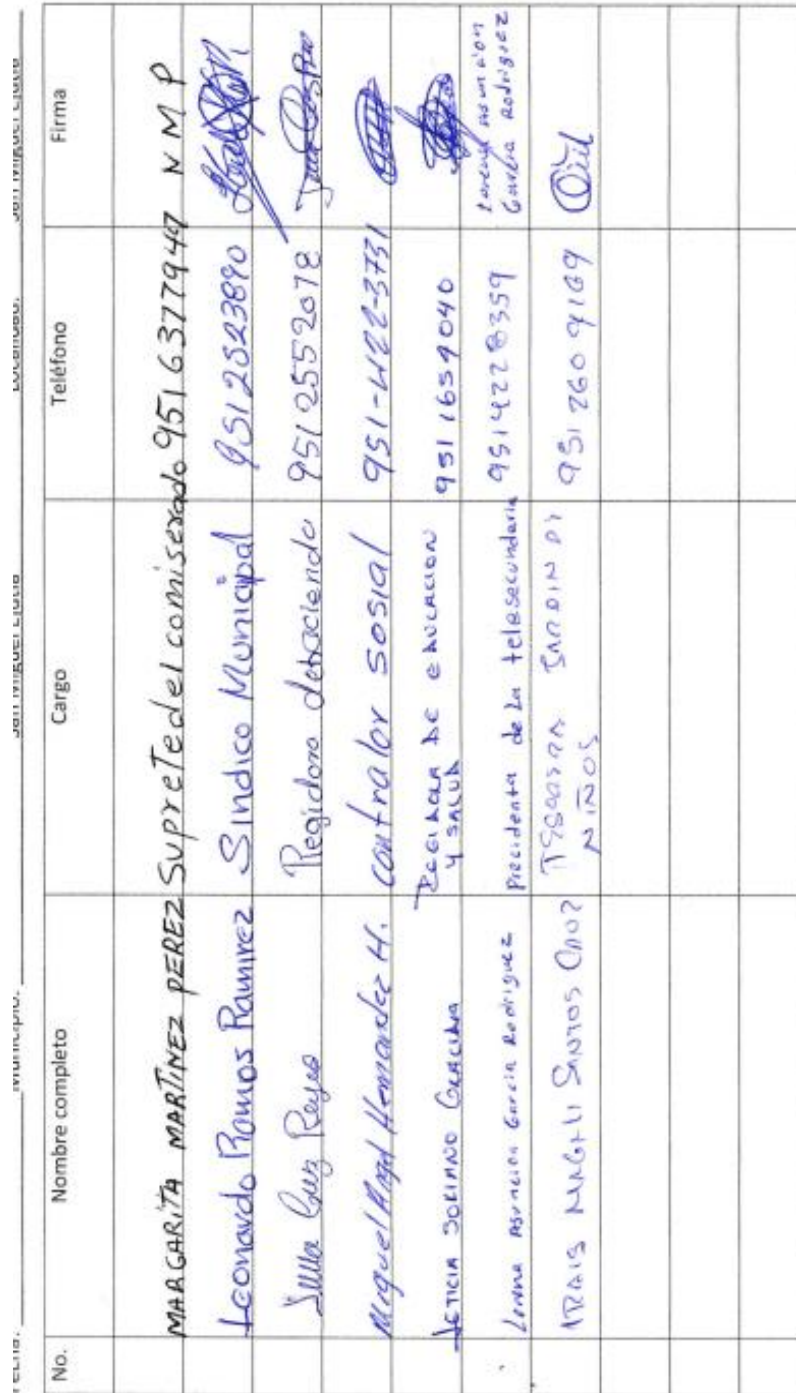 Fecha: Municipio: San Miguel Ejutla Localidad: San Miguel Ejutla
No. Nombre completo Cargo Teléfono Firma
MARGARITA MARTINEZ PEREZ Suprete del comiserado 951 6377947 N M P
Leonardo Ramos Ramirez Sindico Municipal 9512823890
Cruz Reyes Regidora dehaciendo 951 2552078
Miguel Angel Hernandez H. contralor sosial 951-422-3731
LETICIA SORIANO GRACIDA REGIDORA DE EDUCACION Y SALUD 951 1659040
Lorena Asuncion Garcia Rodriguez Precidenta de la telesecundaria 9514228359 Lorena Asuncion Garcia Rodriguez
IRAIS MAGALI SANTOS CRUZ JARDIN DI NIÑOS 951 260 9169